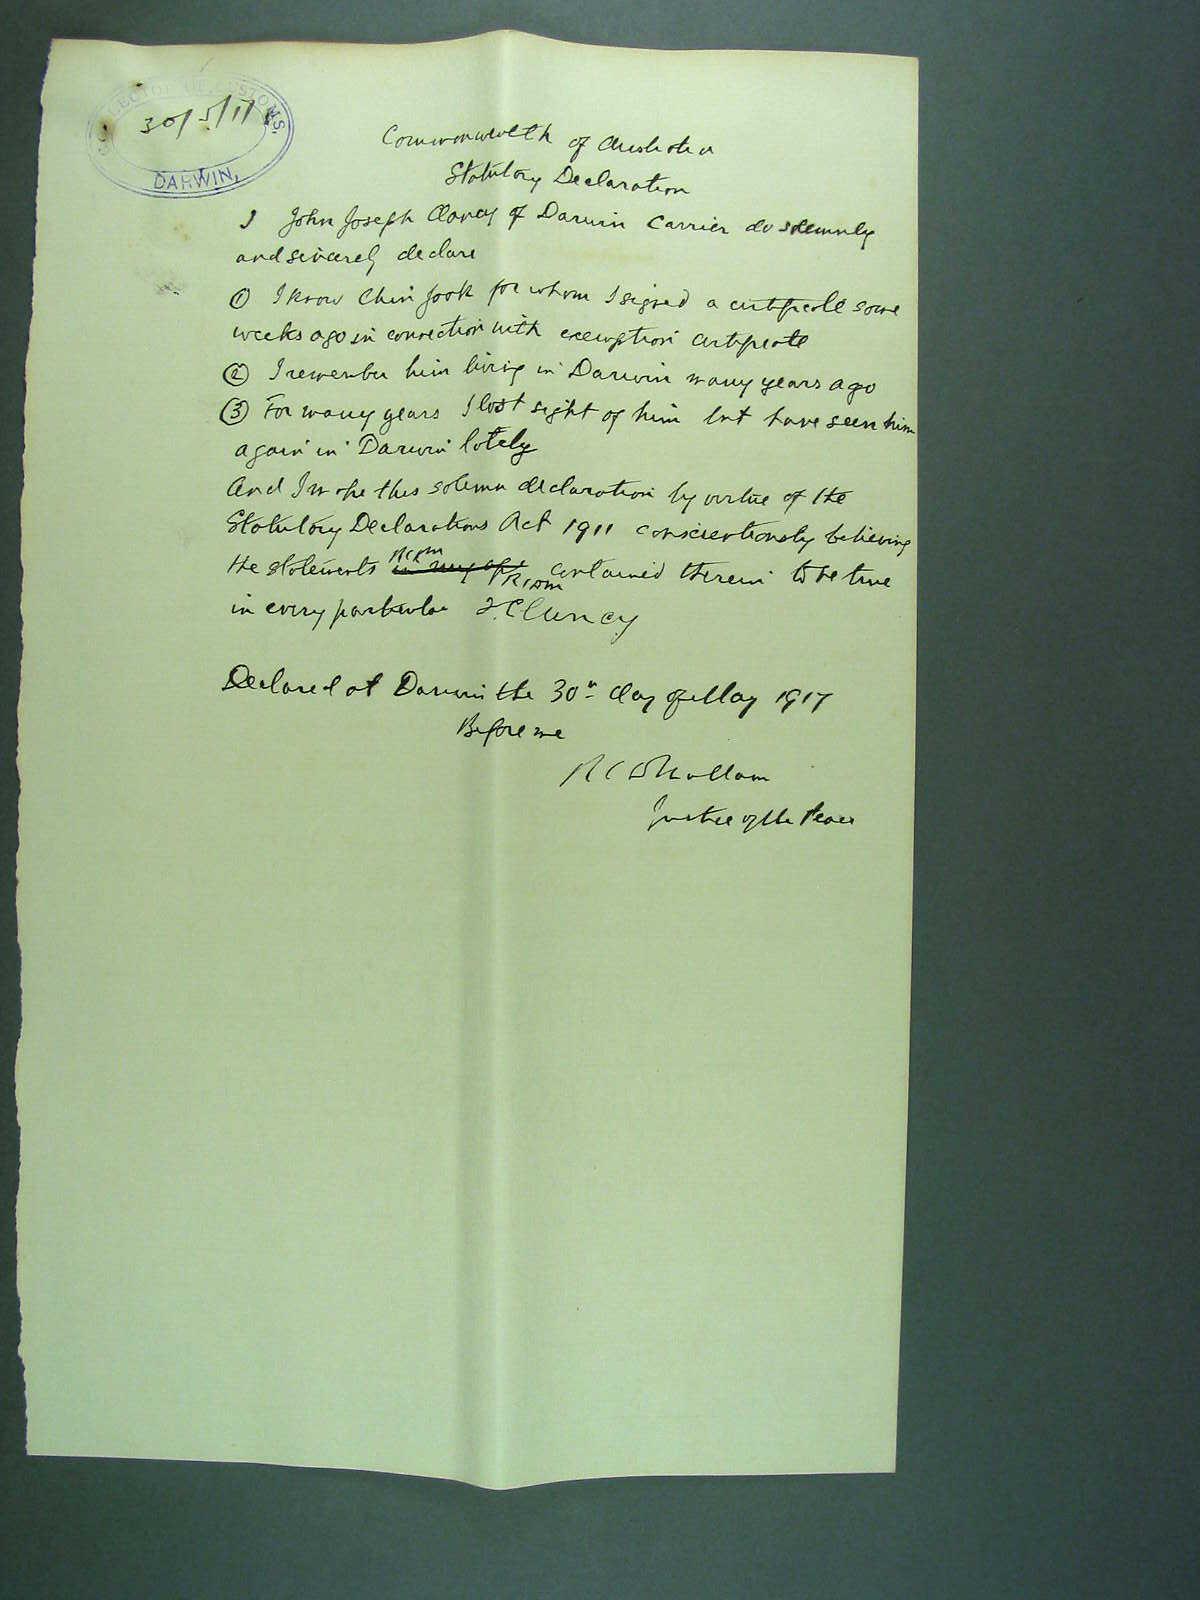 COLLECTOR OF CUSTOMS.
30/5/17
DARWIN.
Commonwealth of Australia
Statutory Declaration
I John Joseph Clancy of Darwin Carrier do solemnly
and sincerely declare
① I know Chin Jook for whom I signed a certificate some
weeks ago in connection with exemption certificate
② I remember him living in Darwin many years ago
③ For many years I lost sight of him but have seen him
again in Darwin lately
And I make this solemn declaration by virtue of the
Statutory Declarations Act 1911 conscientiously believing
the statements contained therein to be true
in every particular J. Clancy
Declared at Darwin the 30th day of May 1917
Before me
Justice of the Peace